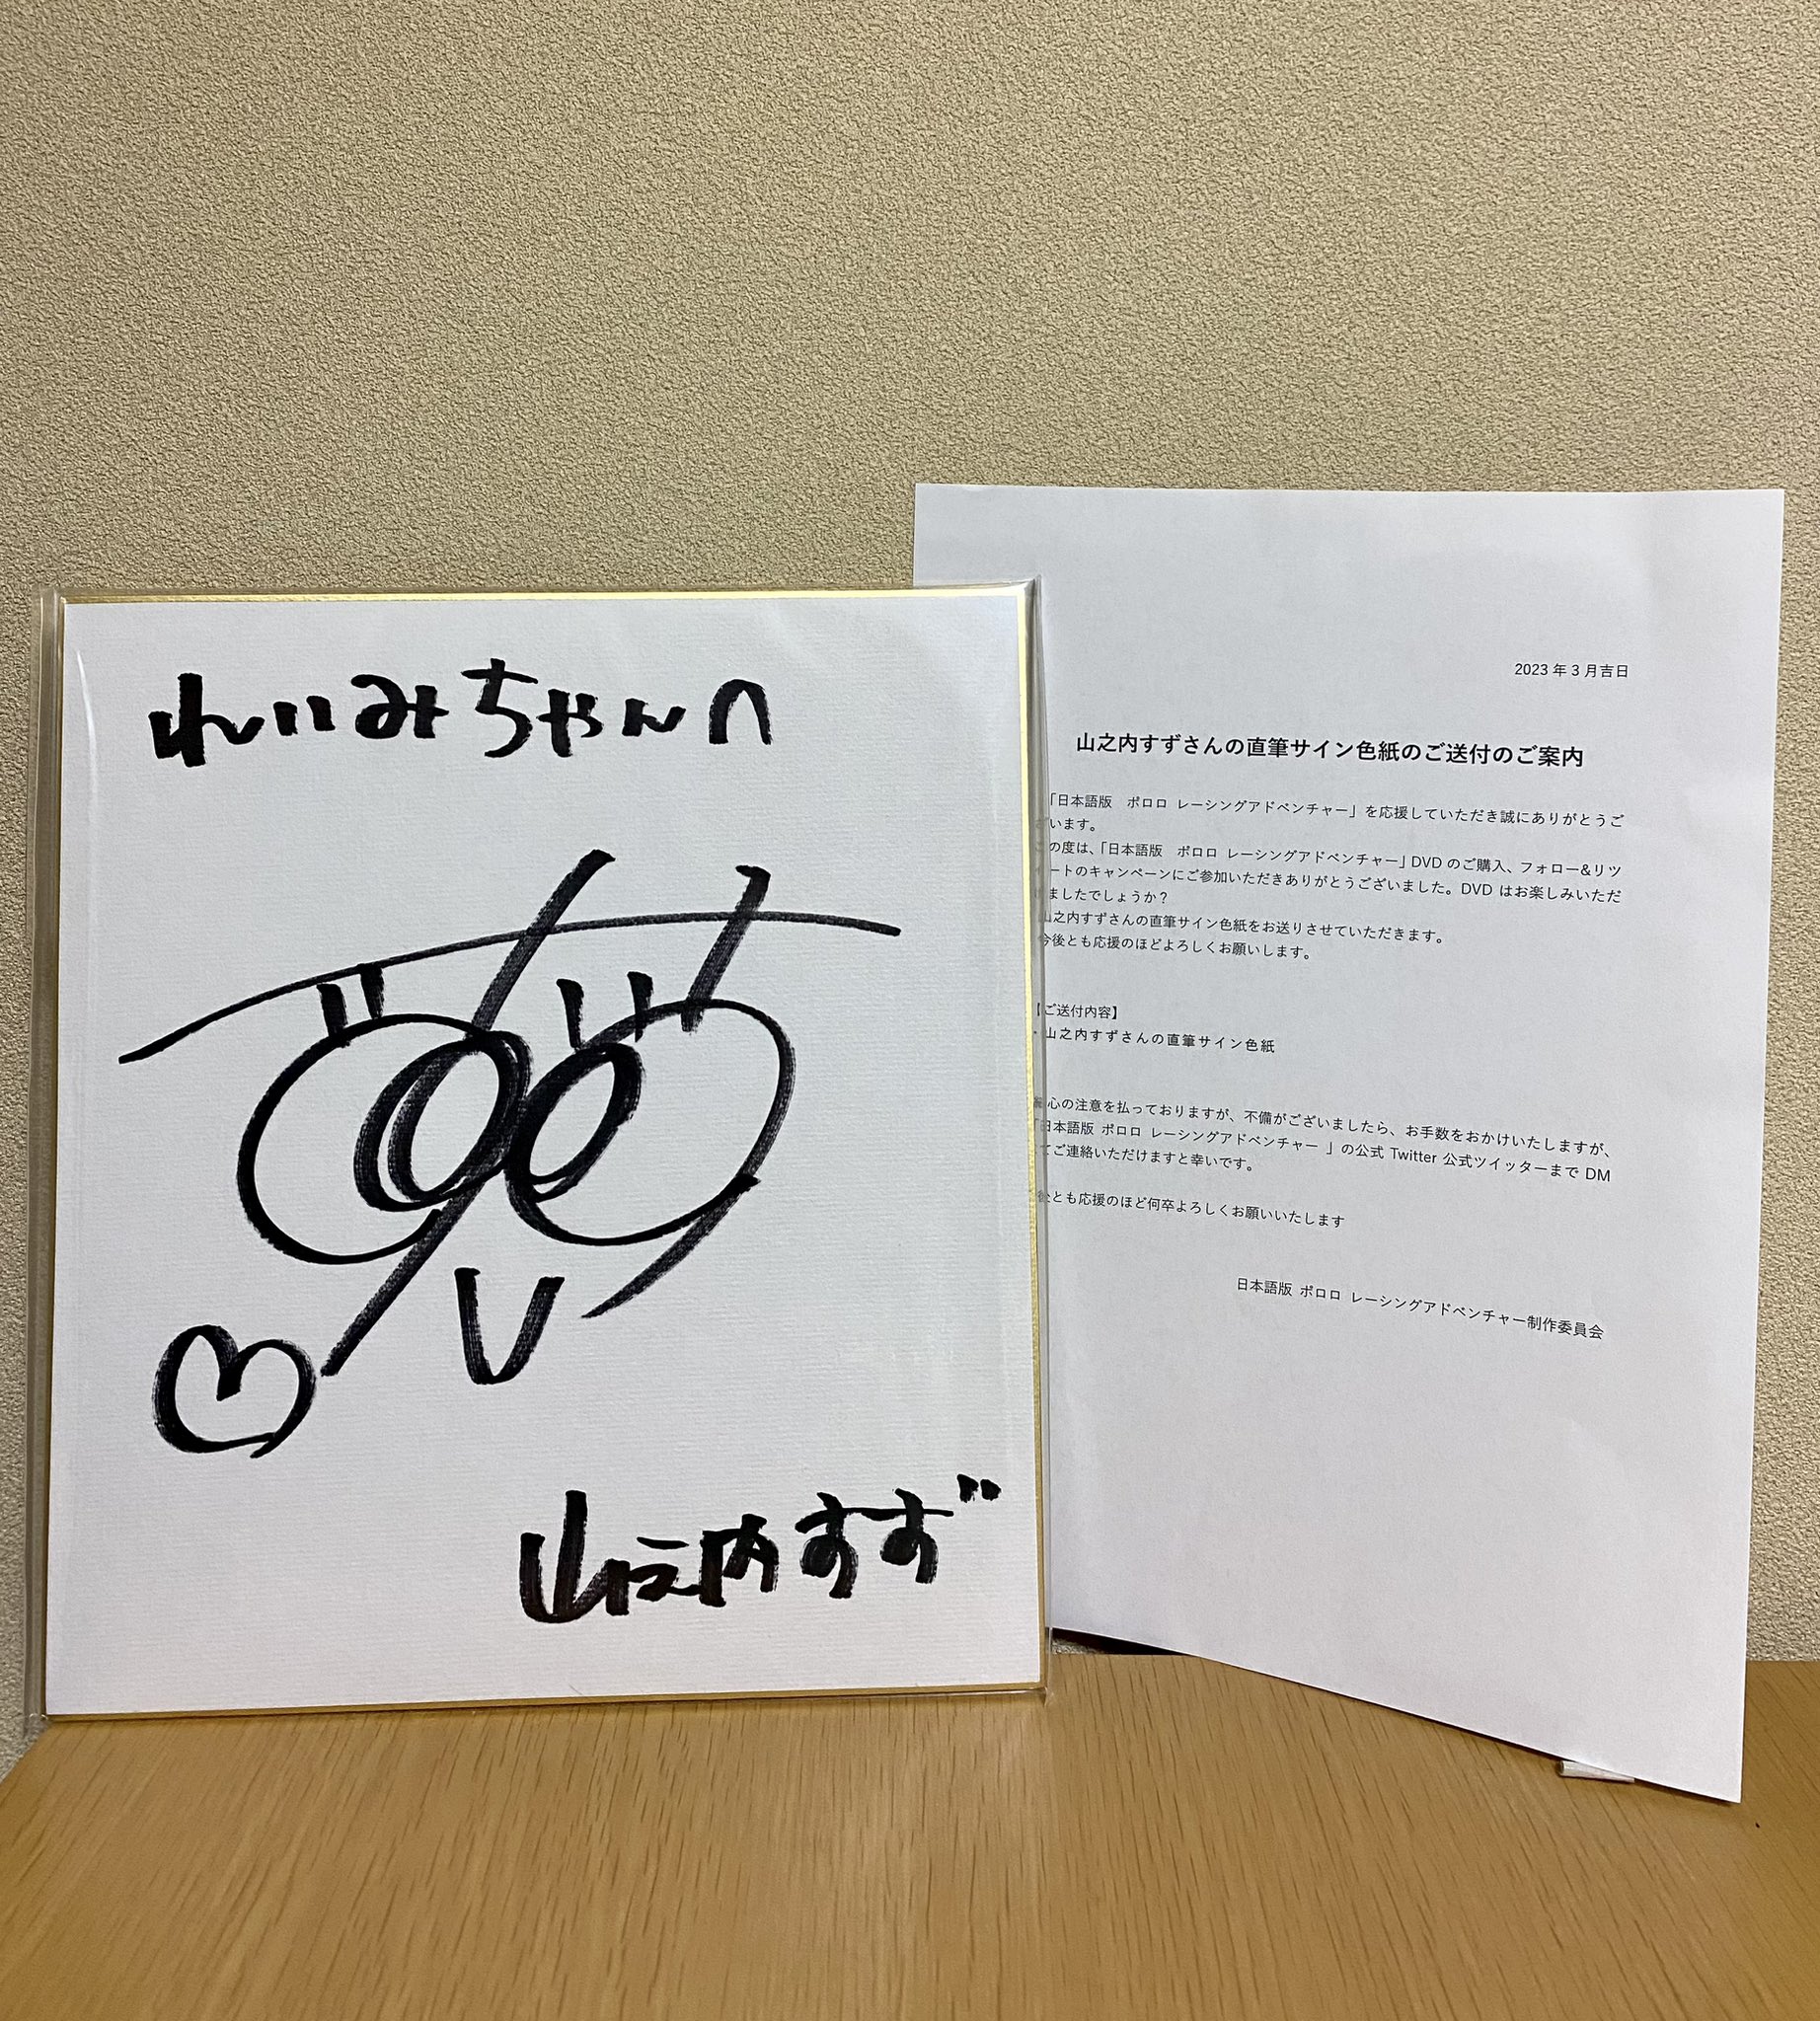 れいみちゃんへ
山之内すず
2023年3月吉日
山之内すずさんの直筆サイン色紙のご送付のご案内
「日本語版　ポロロ レーシングアドベンチャー」を応援していただき誠にありがとうご
ざいます。
の度は、「日本語版　ポロロ レーシングアドベンチャー」DVD のご購入、フォロー&リツ
ートのキャンペーンにご参加いただきありがとうございました。DVD はお楽しみいただ
ましたでしょうか？
山之内すずさんの直筆サイン色紙をお送りさせていただきます。
今後とも応援のほどよろしくお願いします。
【ご送付内容】
・山之内すずさんの直筆サイン色紙
心の注意を払っておりますが、不備がございましたら、お手数をおかけいたしますが、
「日本語版 ポロロ レーシングアドベンチャー 」の公式 Twitter 公式ツイッターまで DM
てご連絡いただけますと幸いです。
後とも応援のほど何卒よろしくお願いいたします
日本語版 ポロロ レーシングアドベンチャー制作委員会